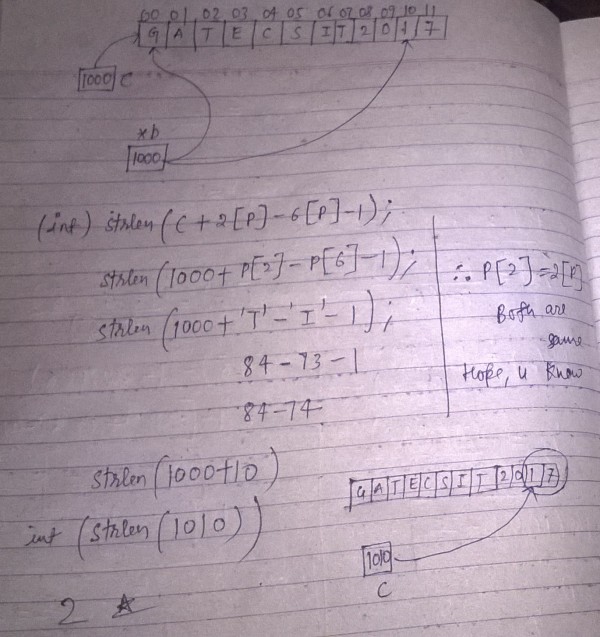 00 01 02 03 04 05 06 07 08 09 10 11
G A T E C S I T 2 0 1 7
1000 C
*b
1000
(int) strlen (C + 2[P] - 6[P] - 1);
strlen (1000 + P[2] - P[6] - 1);
strlen (1000 + 'T' - 'I' - 1);
84 - 73 - 1
84 - 74
∴ P[2] = 2[P]
Both are
same
Hope, u know
strlen (1000 + 10)
G A T E C S I T 2 0 1 7
int (strlen (1010))
1010
C
2